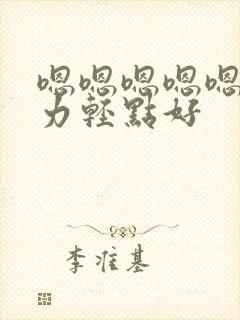 嗯嗯嗯嗯嗯
力輕點好
李准基